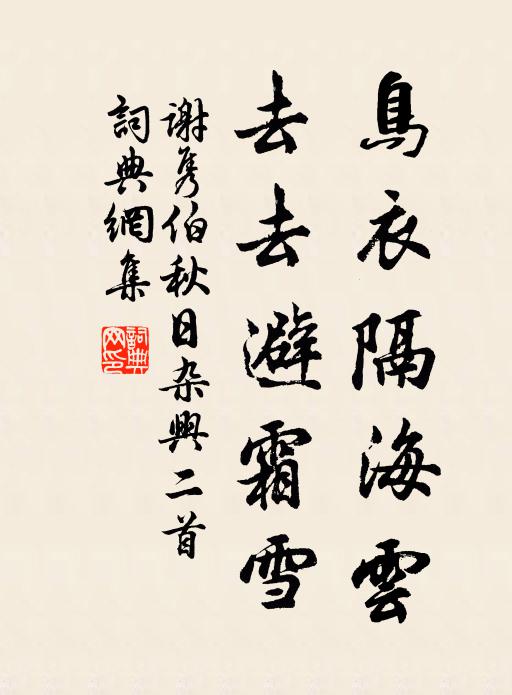 烏衣隔海雲
去去避霜雪
謝隽伯秋日杂興二首
詞典網集
詞典
网印